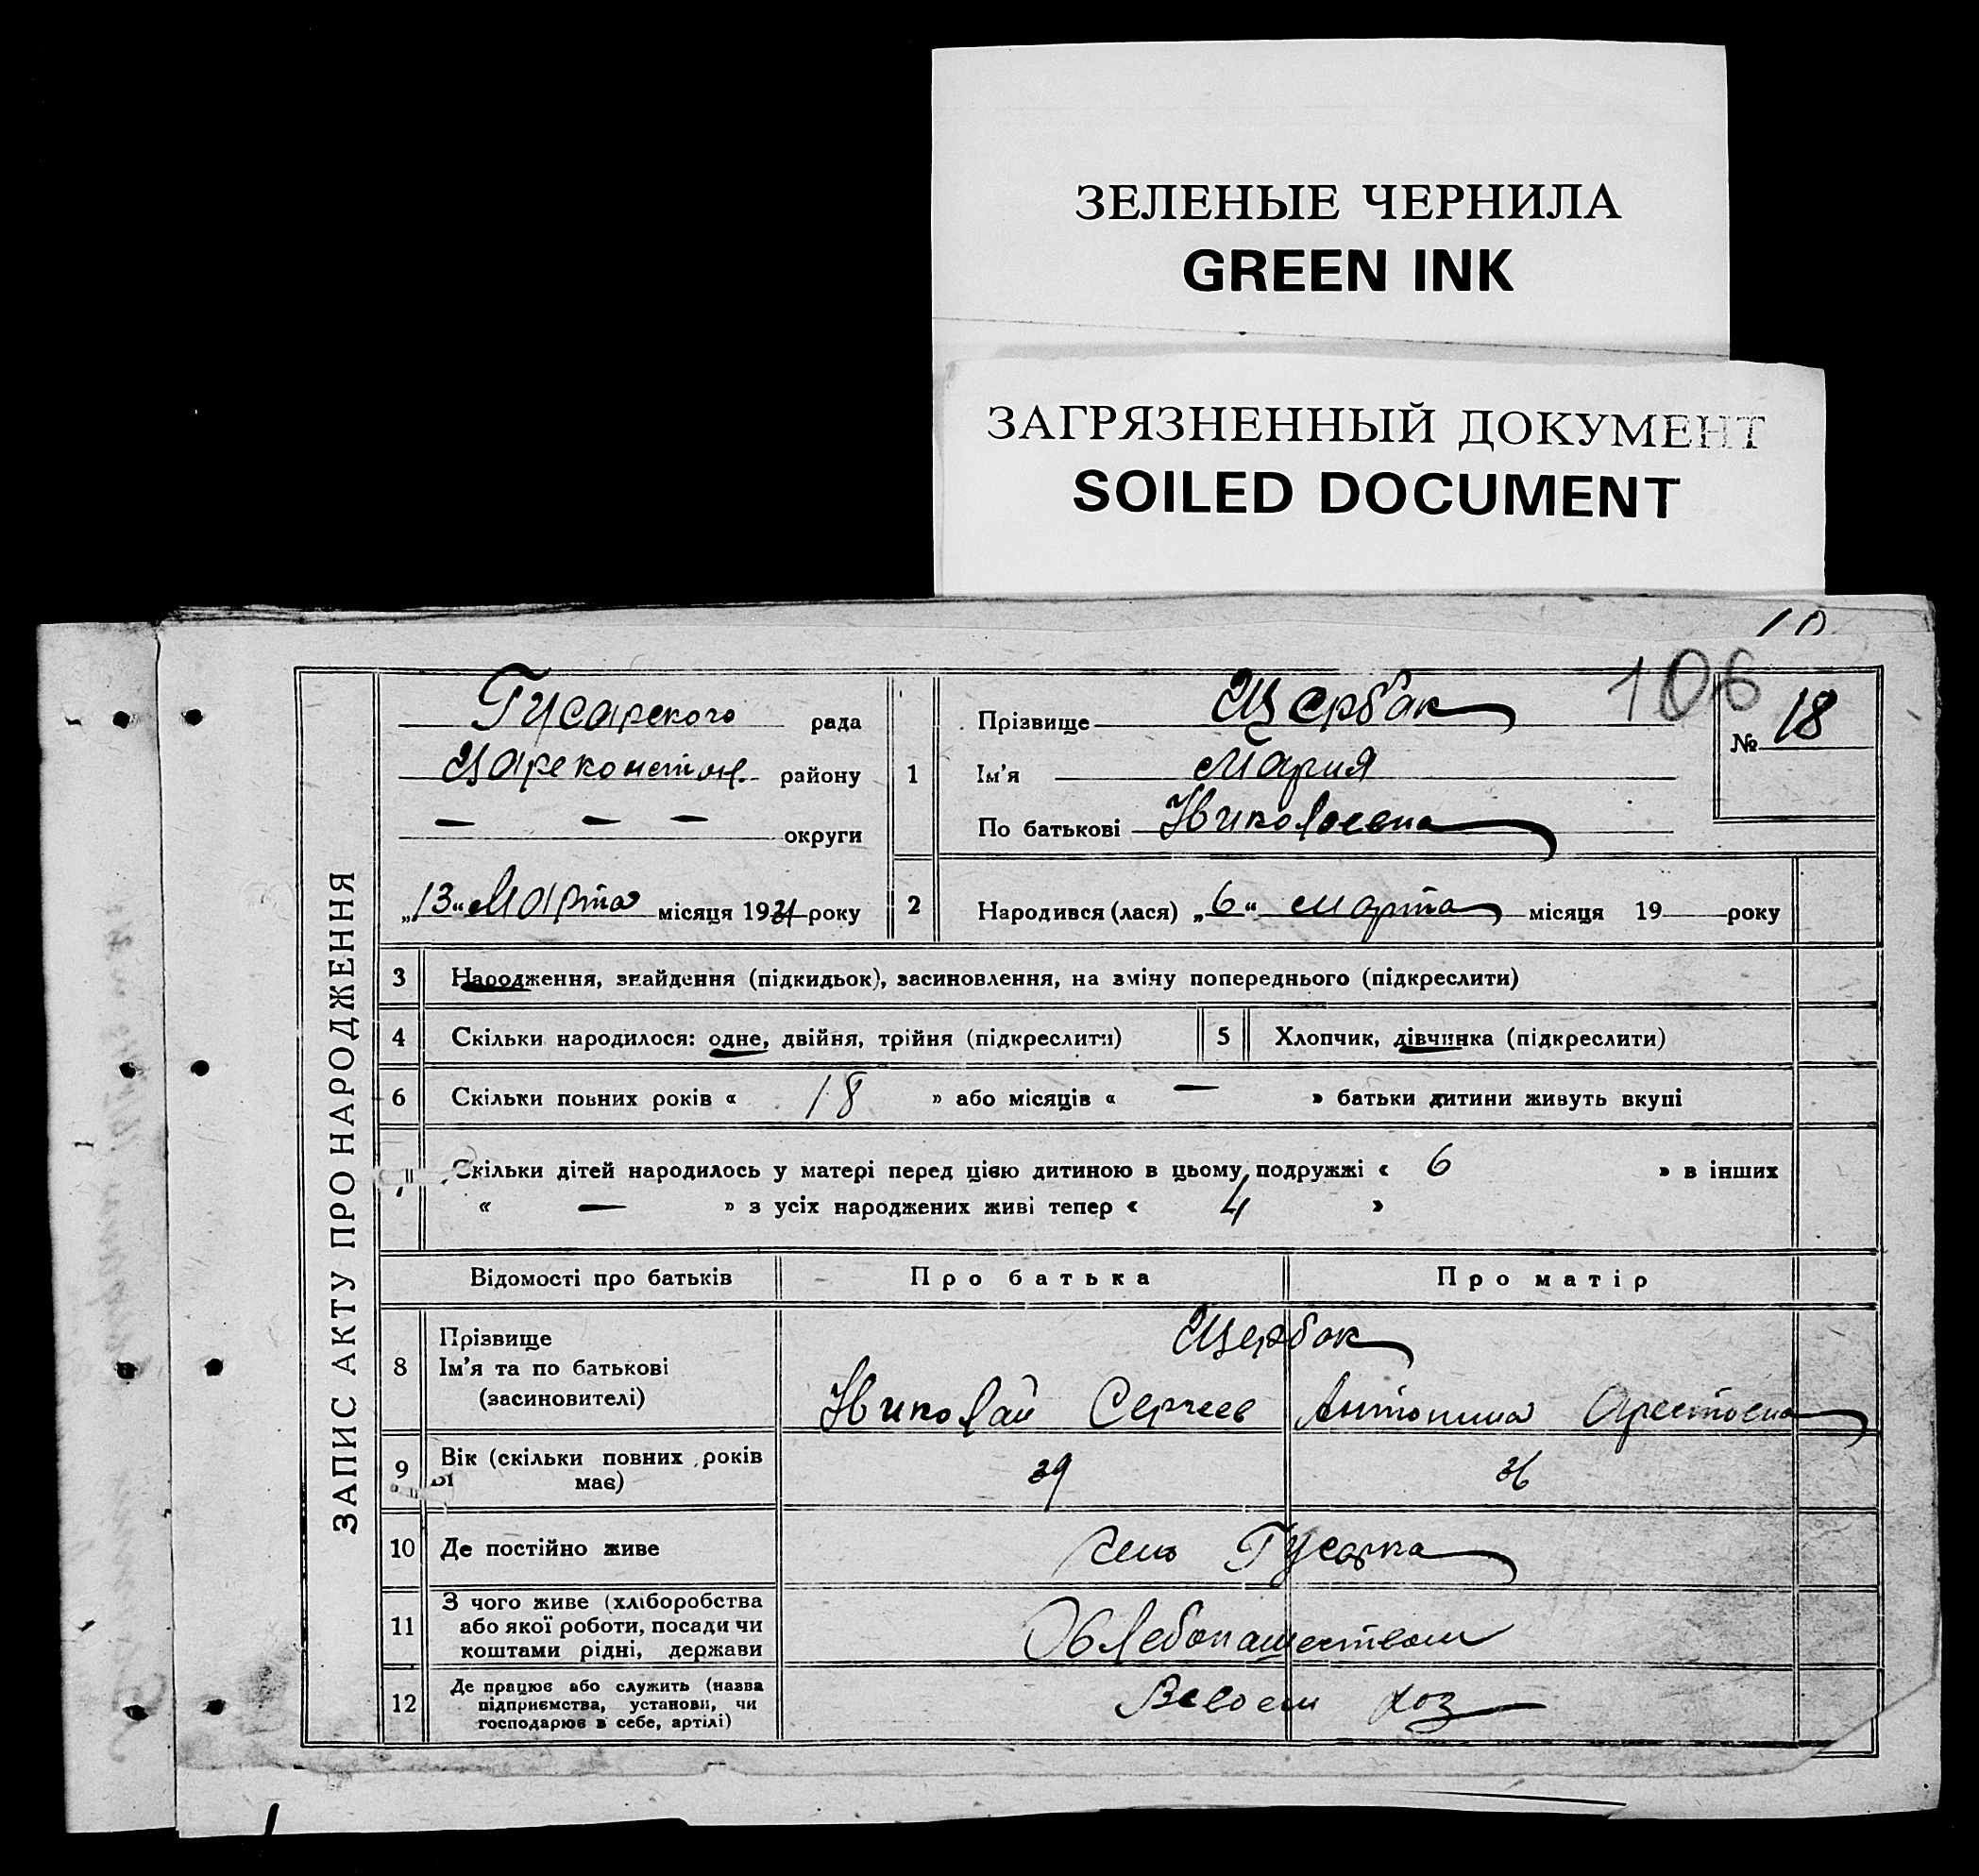 ЗЕЛЕНЫЕ ЧЕРНИЛА
GREEN INK
ЗАГРЯЗНЕННЫЙ ДОКУМЕНТ
SOILED DOCUMENT
106
ЗАПИС АКТУ ПРО НАРОДЖЕННЯ
Гусарского рада
Цареконстан. району
— — — округи
„13“ Марта місяця 1931 року
1 Прізвище Щербак
Ім'я Мария
По батькові Николаевна
№ 18
2 Народився (лася) „6“ марта місяця 19 року
3 Народження, знайдення (підкидьок), засиновлення, на зміну попереднього (підкреслити)
4 Скільки народилося: одне, двійня, трійня (підкреслити)
5 Хлопчик, дівчинка (підкреслити)
6 Скільки повних років « 18 » або місяців « — » батьки дитини живуть вкупі
7 Скільки дітей народилось у матері перед цією дитиною в цьому подружжі « 6 » в інших
« — » з усіх народжених живі тепер « 4 »
Відомості про батьків Про батька Про матір
8 Прізвище
Ім'я та по батькові
(засиновителі)
Щербак
Николай Сергеев Антонина Арестовна
9 Вік (скільки повних років
має)
39 36
10 Де постійно живе село Гусарка
11 З чого живе (хліборобства
або якої роботи, посади чи
коштами рідні, держави
Хлебопашеством
12 Де працює або служить (назва
підприємства, установи, чи
господарює в себе, артілі)
В своем хоз